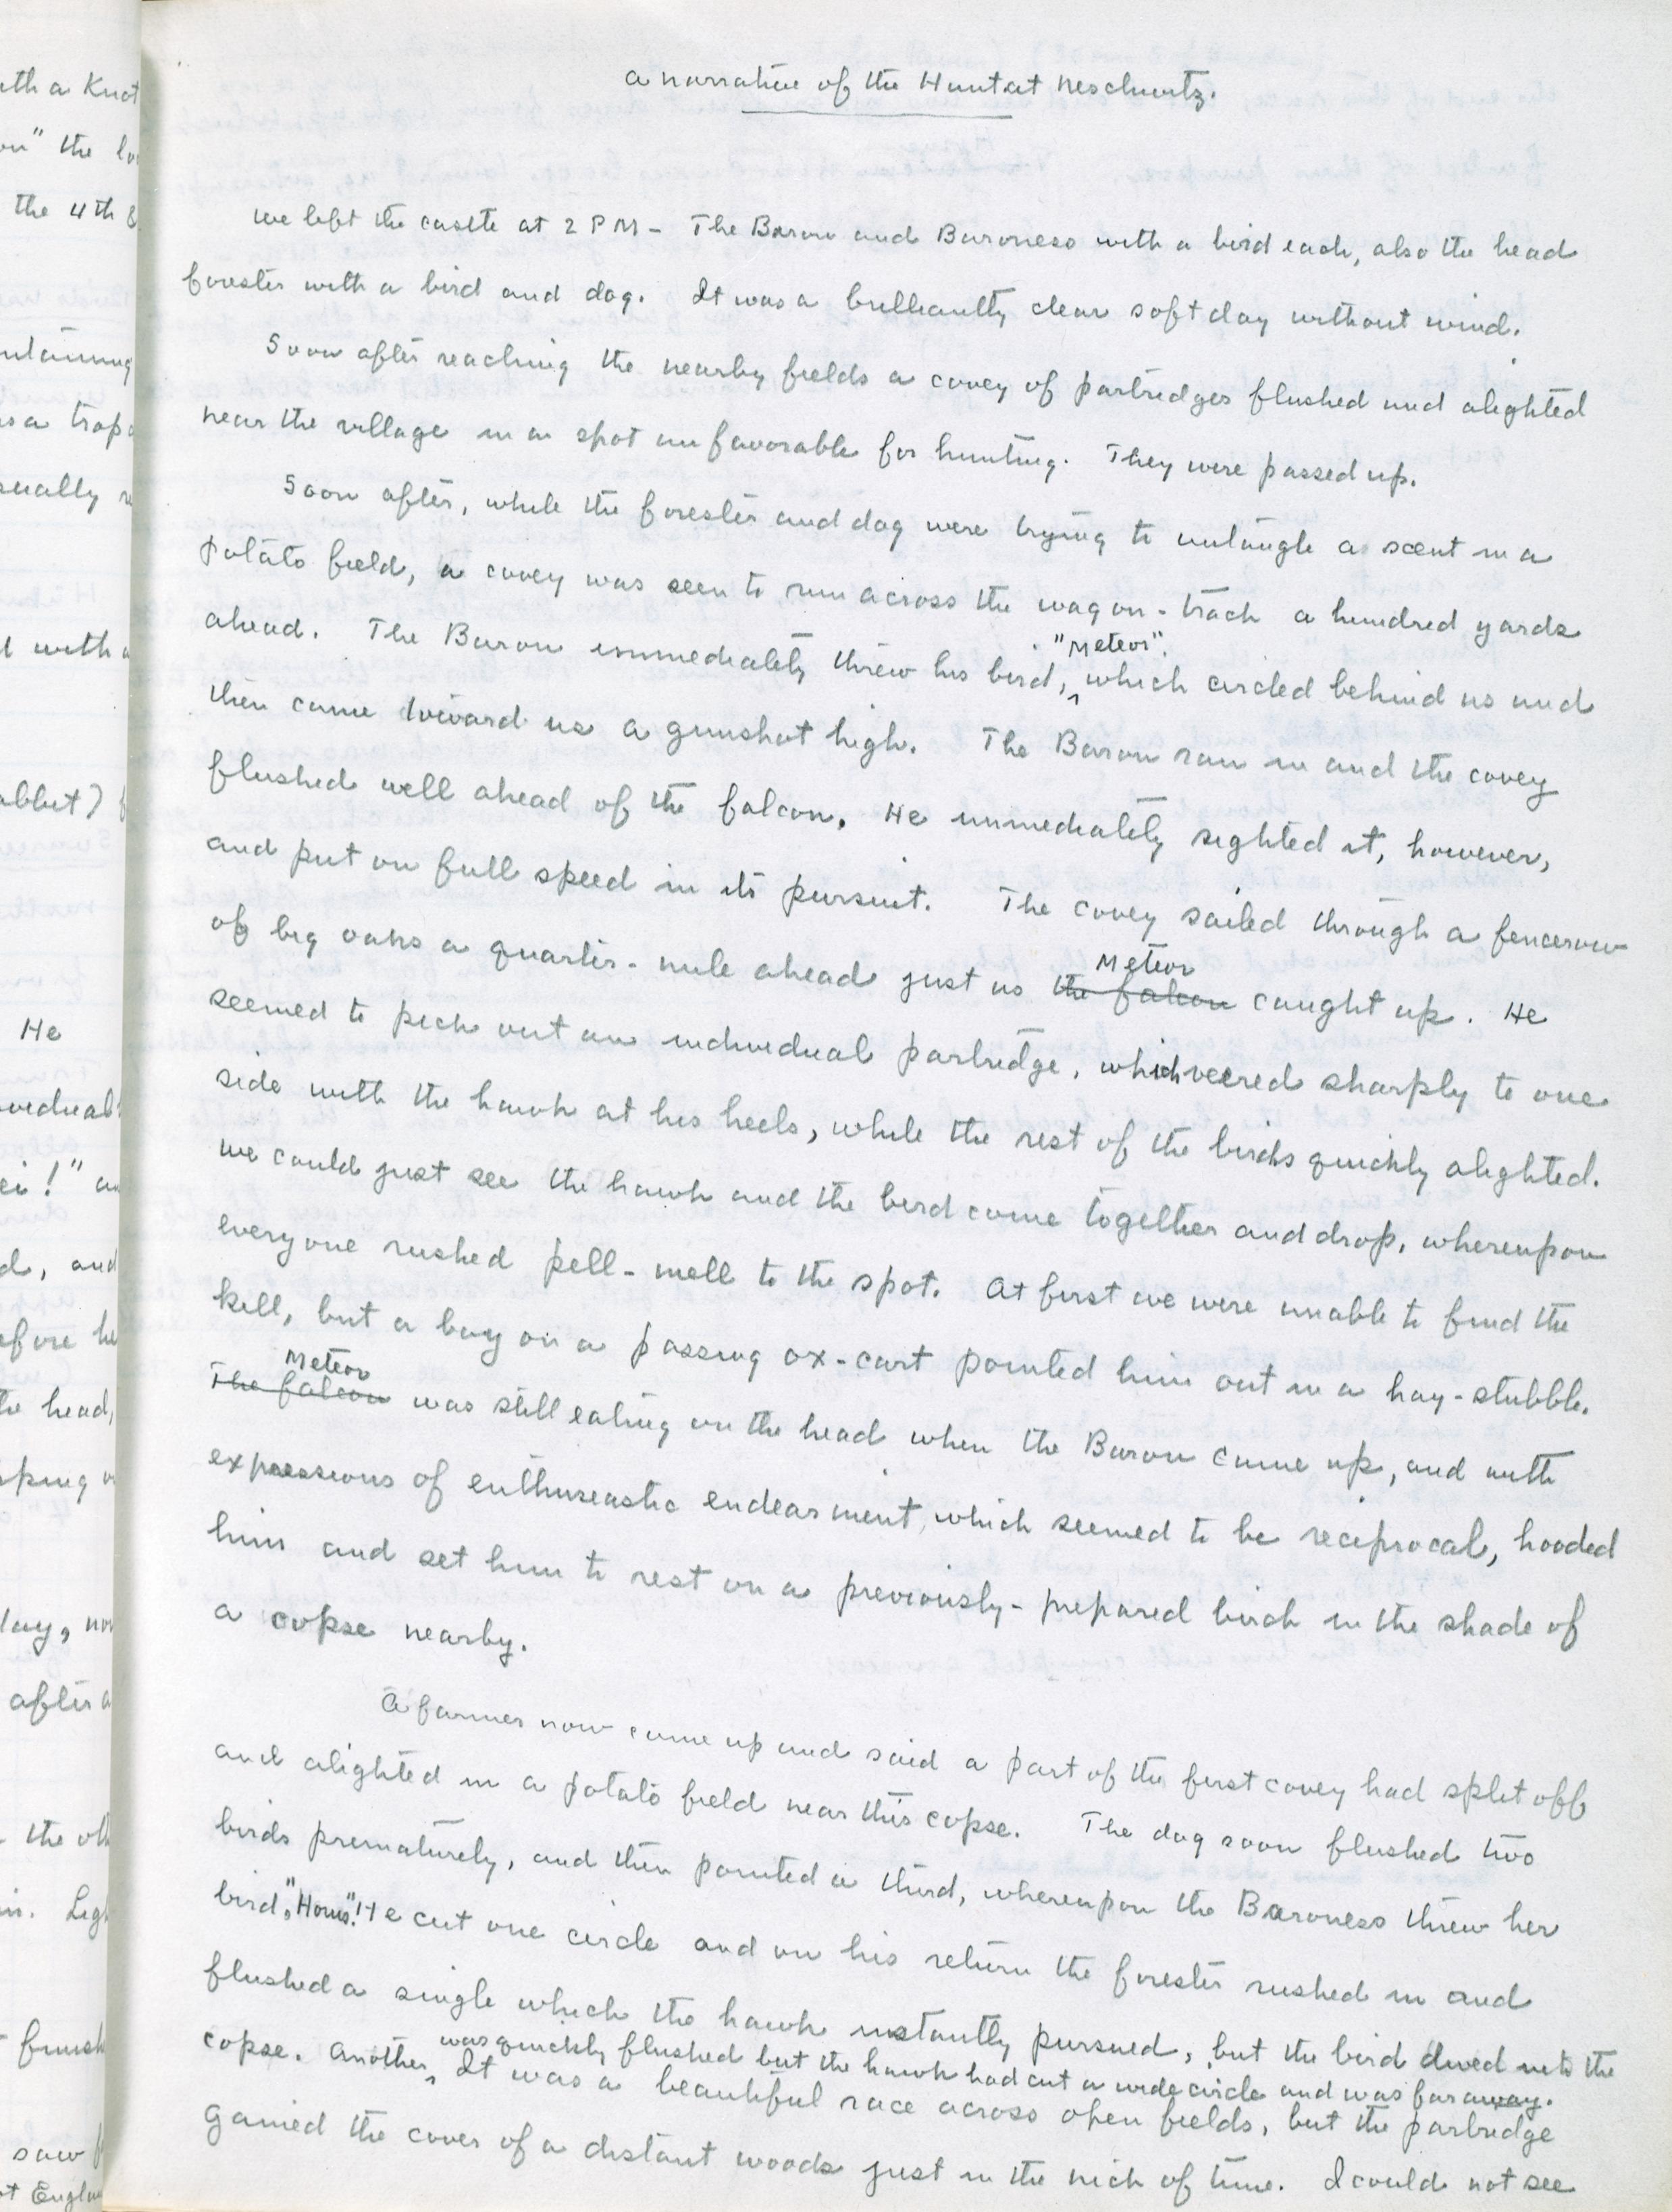 A narrative of the Hunt at Neschwitz.
We left the castle at 2 PM - The Baron and Baroness with a bird each, also the head
forester with a bird and dog. It was a brilliantly clear soft day without wind.
Soon after reaching the nearby fields a covey of partridges flushed and alighted
near the village in a spot unfavorable for hunting. They were passed up.
Soon after, while the forester and dog were trying to untangle a scent in a
potato field, a covey was seen to run across the wagon-track a hundred yards
ahead. The Baron immediately threw his bird, "Meteor", which circled behind us and
then came toward us a gunshot high. The Baron ran in and the covey
flushed well ahead of the falcon. He immediately sighted it, however,
and put on full speed in its pursuit. The covey sailed through a fencerow
of big oaks a quarter-mile ahead just as the falcon Meteor caught up. He
seemed to pick out an individual partridge, which veered sharply to one
side with the hawk at his heels, while the rest of the birds quickly alighted.
We could just see the hawk and the bird come together and drop, whereupon
everyone rushed pell-mell to the spot. At first we were unable to find the
kill, but a boy on a passing ox-cart pointed him out in a hay-stubble.
The falcon Meteor was still eating on the head when the Baron came up, and with
expressions of enthusiastic endearment, which seemed to be reciprocal, hooded
him and set him to rest on a previously-prepared birch in the shade of
a copse nearby.
A farmer now came up and said a part of the first covey had split off
and alighted in a potato field near this copse. The dog soon flushed two
birds prematurely, and then pointed a third, whereupon the Baroness threw her
bird, "Horus". He cut one circle and on his return the forester rushed in and
flushed a single which the hawk instantly pursued, but the bird dived into the
copse. Another was quickly flushed but the hawk had cut a wide circle and was far away. It was a beautiful race across open fields, but the partridge
gained the cover of a distant woods just in the nick of time. I could not see